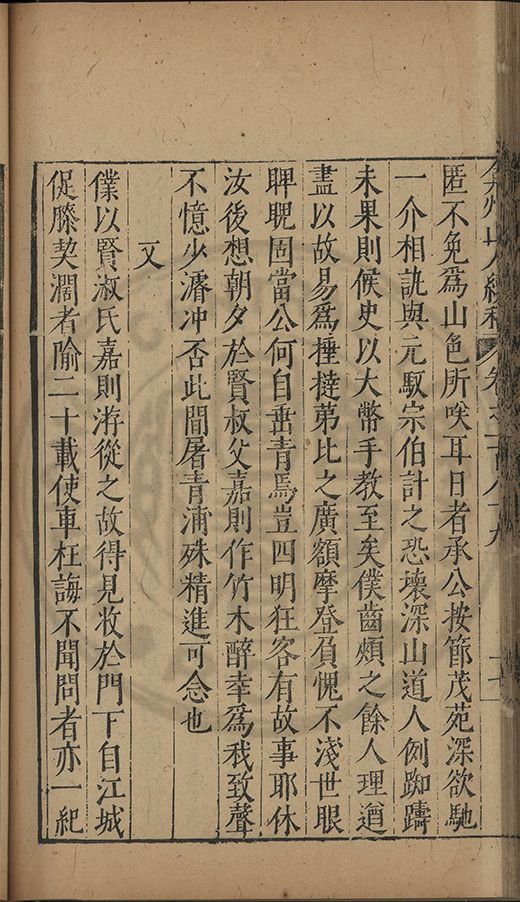 弇州山人續稿 卷之一百八十九 十七
匿不免爲山色所唉耳日者承公按節茂苑深欲馳
一介相訊與元馭宗伯計之恐壞深山道人例踟躊
未果則候史以大幣手教至矣僕齒頰之餘人理遒
盡以故易爲捶撻苐比之廣額摩登負愧不淺世眼
睥睨固當公何自垂青焉豈四明狂客有故事耶休
汝後想朝夕於賢叔父嘉則作竹木醉幸爲我致聲
不憶少濬冲否此間屠青浦殊精進可念也
又
僕以賢淑氏嘉則游從之故得見收於門下自江城
促膝契濶者隃二十載使車枉誨不聞問者亦一紀